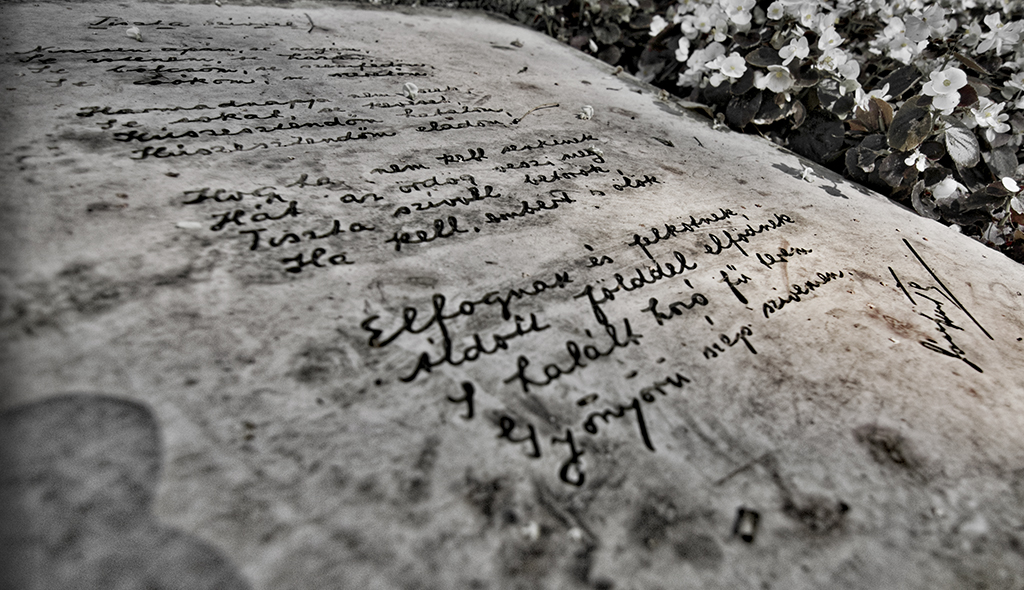 Tiszta szívvel
Harmadnapja nem eszek
Se sokat, se keveset
Húsz esztendőm hatalom
Húsz esztendőm eladom.
Hogyha nem kell senkinek
Hát az ördög veszi meg
Tiszta szívvel betörök
Ha kell, embert is ölök
Elfognak és felkötnek
áldott földdel elfödnek
S halált hozó fű terem
Gyönyörű szép szívemen.